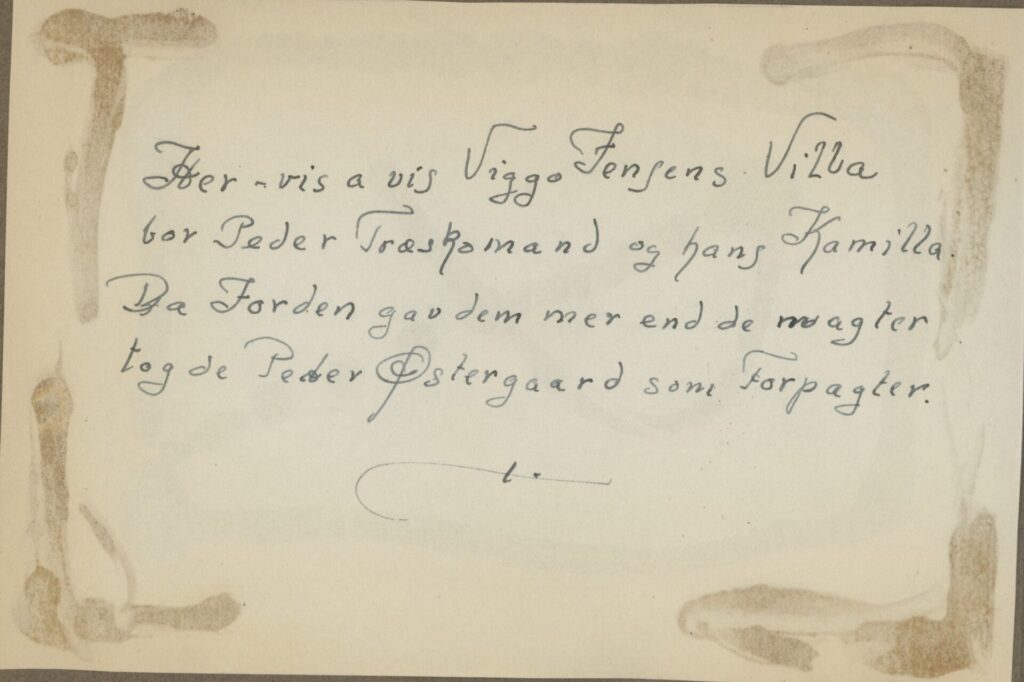 Her - vis a vis Viggo Jensens Villa
bor Peder Træskomand og hans Kamilla.
Da Jorden gav dem mer end de magter
tog de Peder Østergaard som Forpagter.
1.